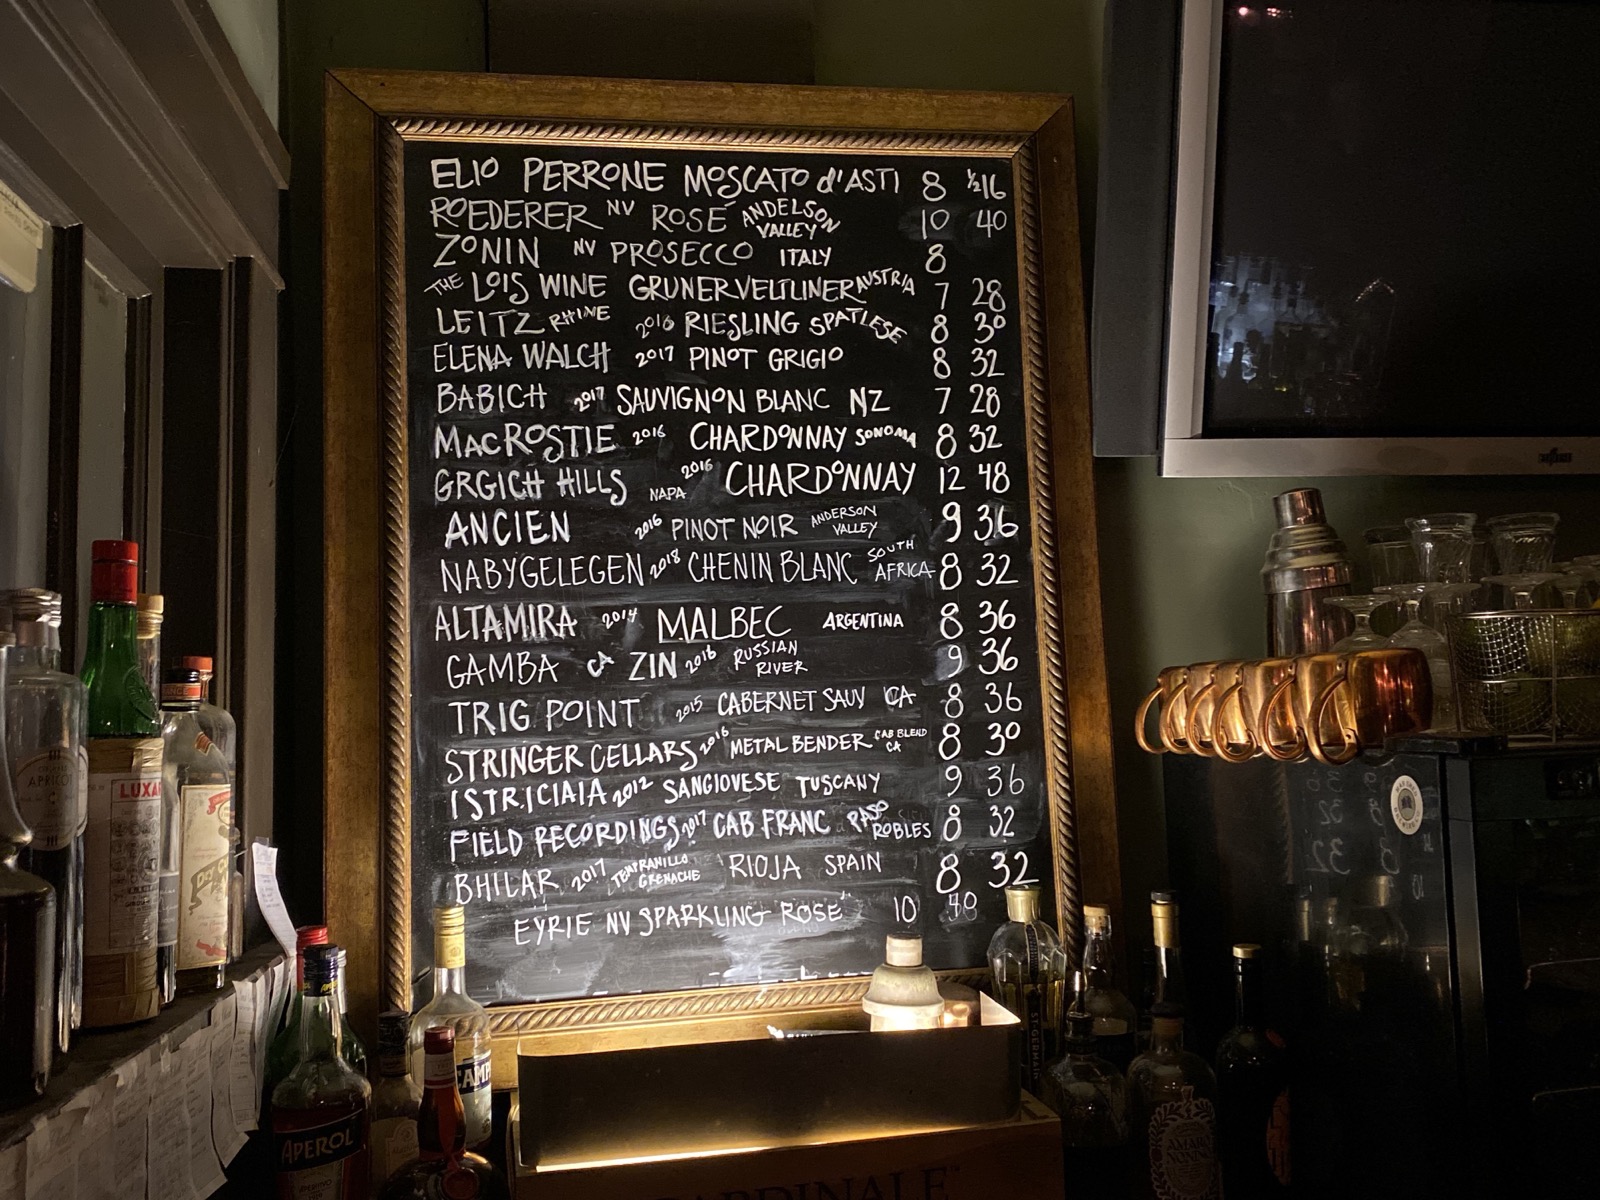 ELIO PERRONE MOSCATO d'ASTI 8 ½16
ROEDERER NV ROSÉ ANDELSON VALLEY 10 40
ZONIN NV PROSECCO ITALY 8
THE LOIS WINE GRUNER VELTLINER AUSTRIA 7 28
LEITZ RHINE 2016 RIESLING SPATLESE 8 30
ELENA WALCH 2017 PINOT GRIGIO 8 32
BABICH 2017 SAUVIGNON BLANC NZ 7 28
MACROSTIE 2016 CHARDONNAY SONOMA 8 32
GRGICH HILLS NAPA 2016 CHARDONNAY 12 48
ANCIEN 2016 PINOT NOIR ANDERSON VALLEY 9 36
NABYGELEGEN 2018 CHENIN BLANC SOUTH AFRICA 8 32
ALTAMIRA 2014 MALBEC ARGENTINA 8 36
GAMBA CA ZIN 2016 RUSSIAN RIVER 9 36
TRIG POINT 2015 CABERNET SAUV CA 8 36
STRINGER CELLARS 2016 METAL BENDER CAB BLEND CA 8 30
ISTRICIAIA 2012 SANGIOVESE TUSCANY 9 36
FIELD RECORDINGS 2017 CAB FRANC PASO ROBLES 8 32
BHILAR 2017 TEMPRANILLO GRENACHE RIOJA SPAIN 8 32
EYRIE NV SPARKLING ROSE 10 40
APRICOT
LUXAR
APEROL
CAMP
ST·GERMAIN
AMARO
NONINO
CARDINALE